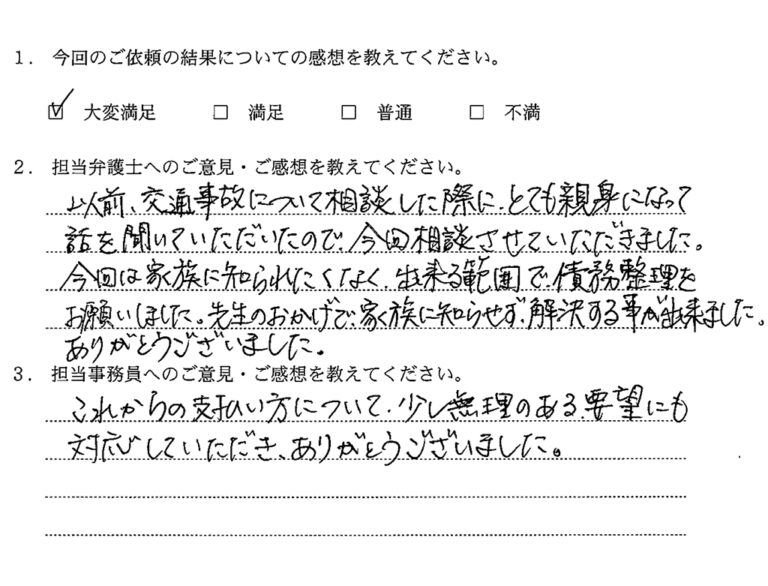 1． 今回のご依頼の結果についての感想を教えてください。
☑ 大変満足 □ 満足 □ 普通 □ 不満
2． 担当弁護士へのご意見・ご感想を教えてください。
以前、交通事故について相談した際に、とても親身になって
話を聞いていただいたので、今回相談させていただきました。
今回は家族に知られたくなく、出来る範囲で、債務整理を
お願いしました。先生のおかげで、家族に知らせず、解決する事が出来ました。
ありがとうございました。
3． 担当事務員へのご意見・ご感想を教えてください。
これからの支払い方について、少し無理のある、要望にも
対応していただき、ありがとうございました。